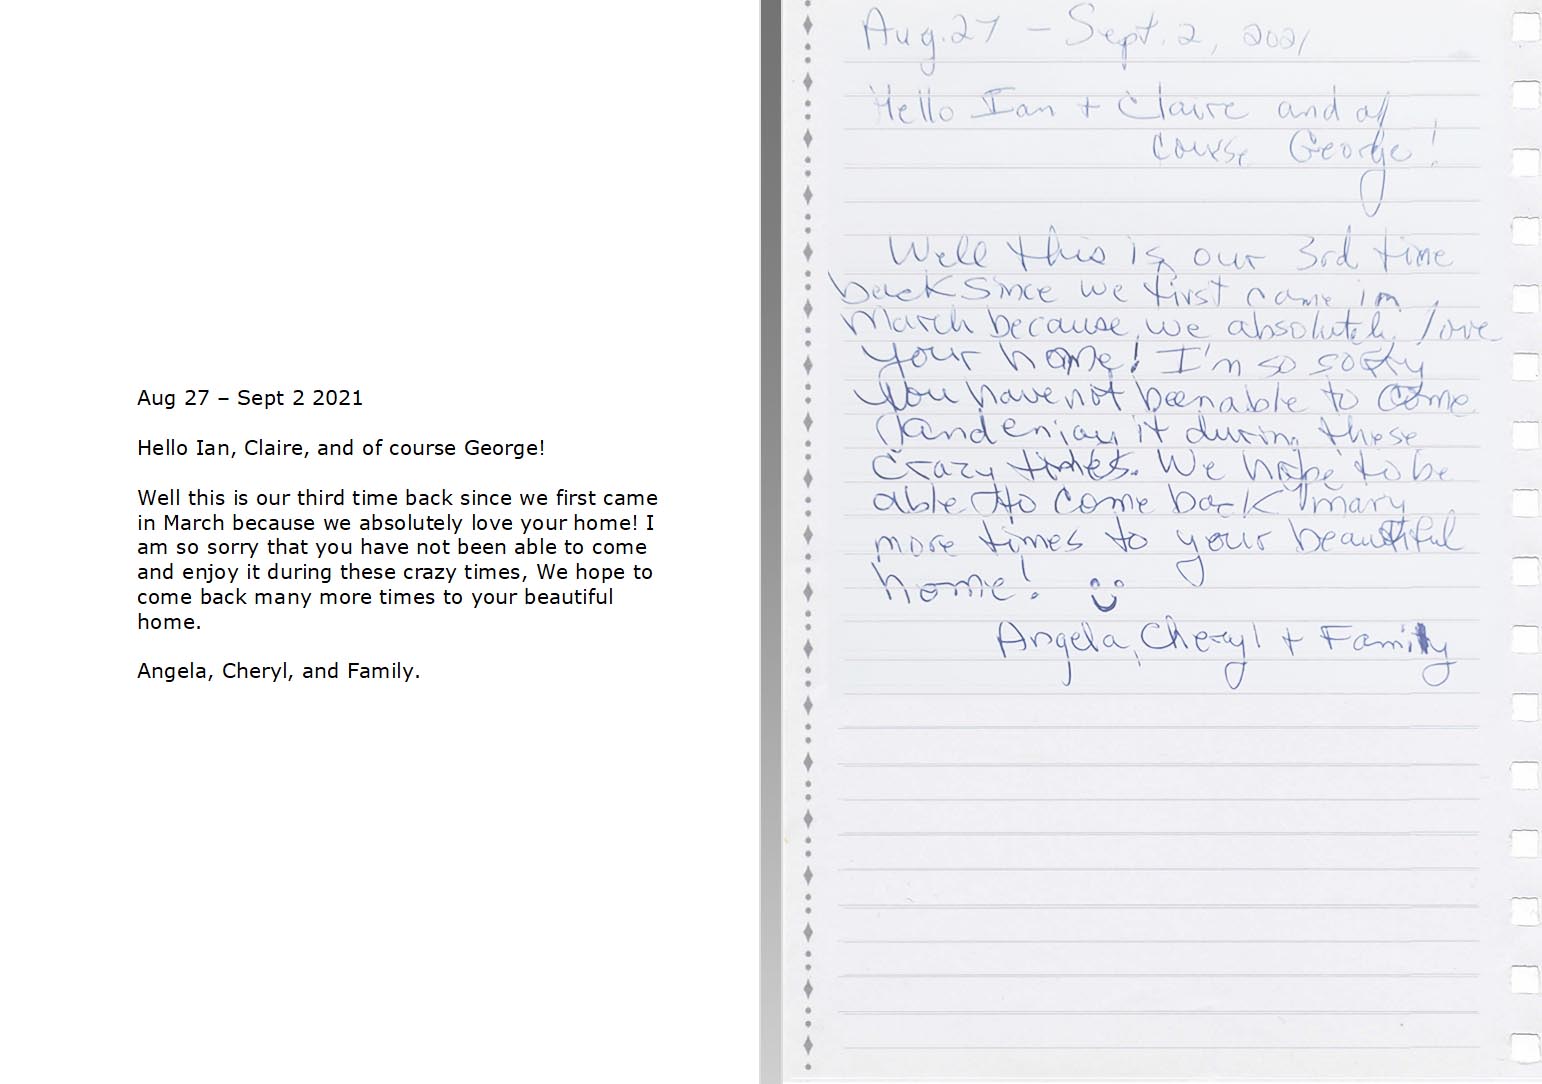 Aug 27 – Sept 2 2021
Hello Ian, Claire, and of course George!
Well this is our third time back since we first came
in March because we absolutely love your home! I
am so sorry that you have not been able to come
and enjoy it during these crazy times, We hope to
come back many more times to your beautiful
home.
Angela, Cheryl, and Family.
Aug. 27 – Sept. 2, 2021
Hello Ian + Claire and of
course George!
Well this is our 3rd time
back since we first came in
March because we absolutely love
your home! I'm so sorry
you have not been able to come
and enjoy it during these
crazy times. We hope to be
able to come back many
more times to your beautiful
home!
Angela, Cheryl + Family